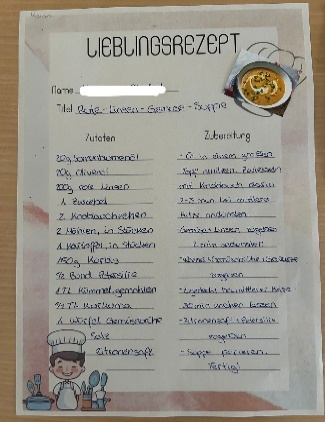 LIEBLINGSREZEPT
Name
Titel Rote-Linsen-Gemüse-Suppe
Zutaten
20g Sonnenblumenöl
20g Olivenöl
200g rote Linsen
1 Zwiebel
2 Knoblauchzehen
2 Möhren, in Stücken
1 Kartoffel, in Stücken
150g
1/2 Bund Petersilie
1 TL Kümmel, gemahlen
1/2 TL Kurkuma
Würfel Gemüsebrühe
Salz
Zitronensaft
Zubereitung
- Öl in einem großen
Topf erhitzen, Zwiebeln
mit Knoblauch
2-3 min bei mittlerer
Hitze andünsten
Gemüse, Linsen zugeben
2 min andünsten
- Wasser, Gemüsebrühe, Gewürze
zugeben
- bei mittlerer Hitze
30 min kochen lassen
- Zitronensaft, Petersilie
zugeben
- Suppe pürieren,
Fertig!